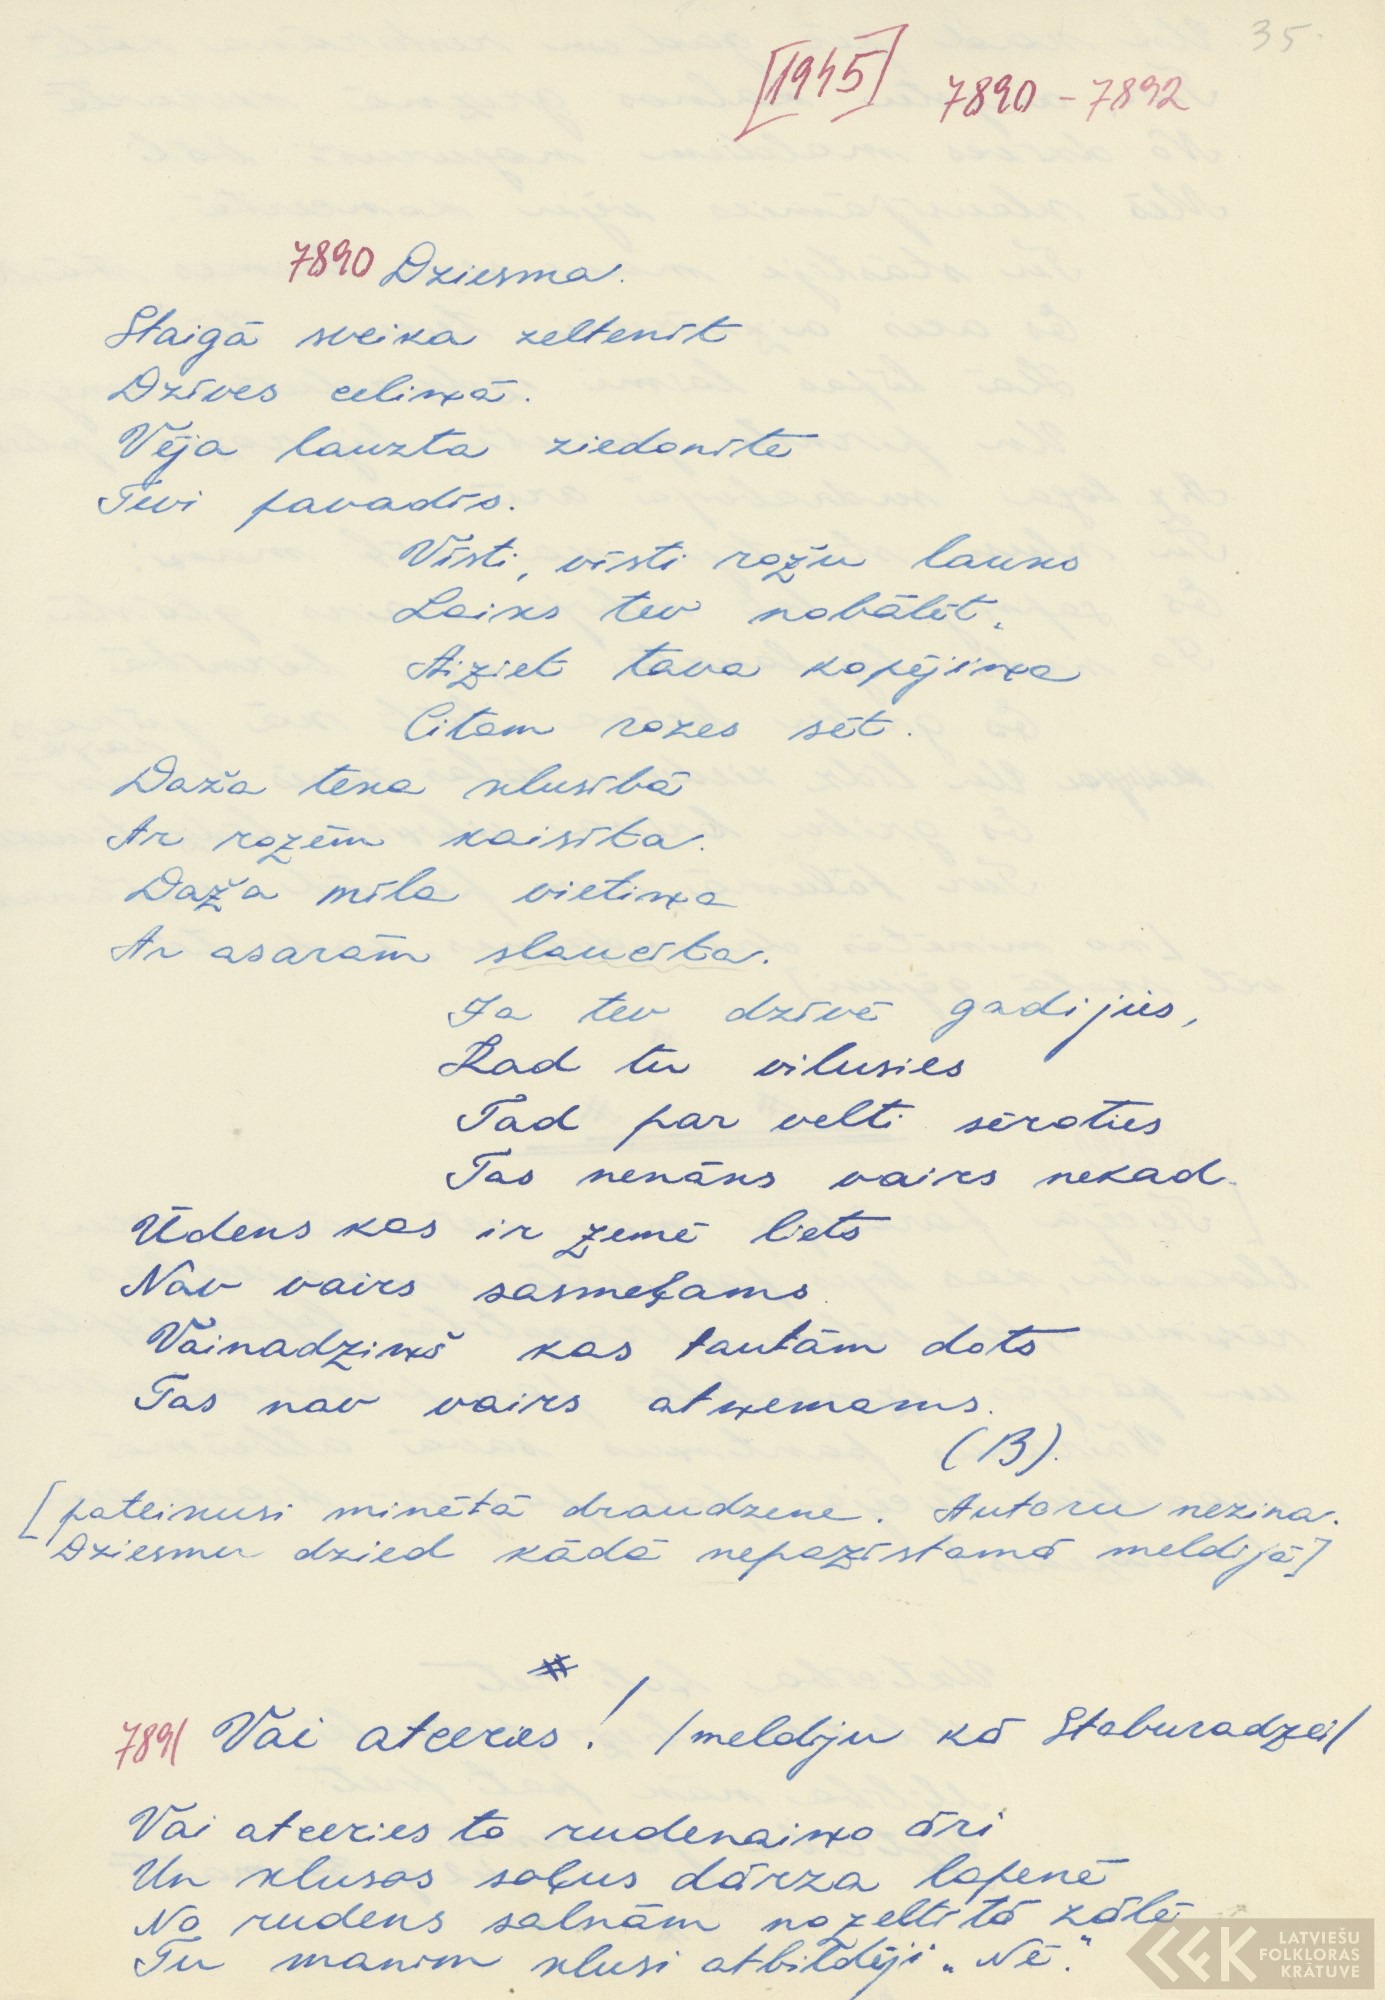 35.
[1945] 7890 - 7892
7890 Dziesma.
Staigā sveika zeltenīt
Dzīves celiņā.
Vēja lauzta ziedonīte
Tevi pavadīs.
Vīsti, vīsti rožu lauks
Laiks tev nobālēt.
Aiziet tava kopējiņa
Citam rozes sēt.
Daža teka klusībā
Ar rozēm kaisīta.
Daža mīla vietiņa
Ar asarām slaucīta.
Ja tev dzīvē gadijies,
Kad tu vilusies
Tad par velti sēroties
Tas nenāks vairs nekad.
Ūdens kas ir zemē liets
Nav vairs sasmeļams
Vainadziņš kas tautām dots
Tas nav vairs atņemams.
(B).
[pateikusi minētā draudzene. Autoru nezina.
Dziesmu dzied kādā nepazīstamā meldijā]
#
7891 Vai atceries! /meldiju kā Staburadzei/
Vai atceries to rudenaiņo āri
Un klusos soļus dārza lapenē
No rudens salnām nozeltītā zālē
Tu manim klusi atbildēji „Nē."
LATVIEŠU
FOLKLORAS
KRĀTUVE